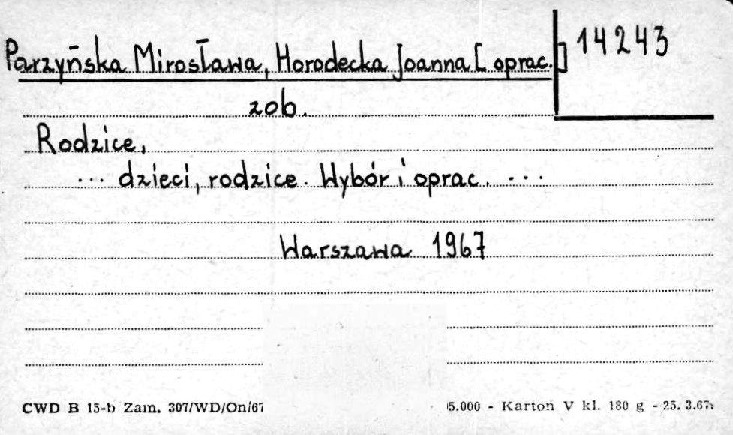 Parzyńska Mirosława, Horodecka Joanna [oprac.]
14243
zob.
Rodzice,
... dzieci, rodzice. Wybór i oprac. ...
Warszawa 1967
CWD B 15-b Zam. 307/WD/On/67
5.000 - Karton V kl. 180 g - 25.3.67r